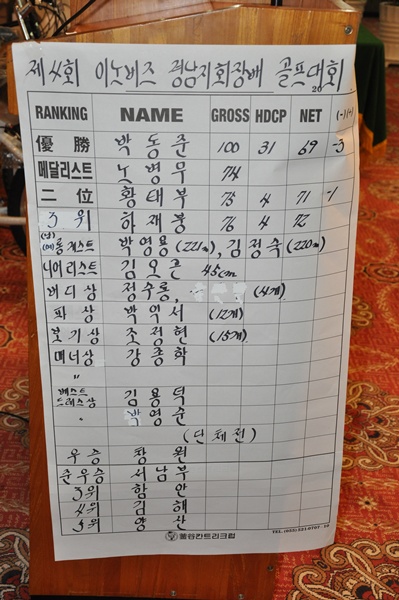 제4회 이노비즈 경남지회장배 골프대회
20
RANKING NAME GROSS HDCP NET (-)(+)
優勝 박동준 100 31 69 -3
메달리스트 노병우 74
二位 황태부 75 4 71 -1
3위 하재붕 76 4 72
롱게스트 박영용 (221m), 김정숙 (220m)
니어리스트 김오근 45cm
버디상 정수룡, (4개)
파상 박익서 (12개)
보기상 조정현 (15개)
매너상 강종학
"
베스트
드레스상 김용덕
" 박영순
(단체전)
우승 창원
준우승 서남부
3위 함안
4위 김해
5위 양산
TEL. (052) 221-0707
컨트리크럽